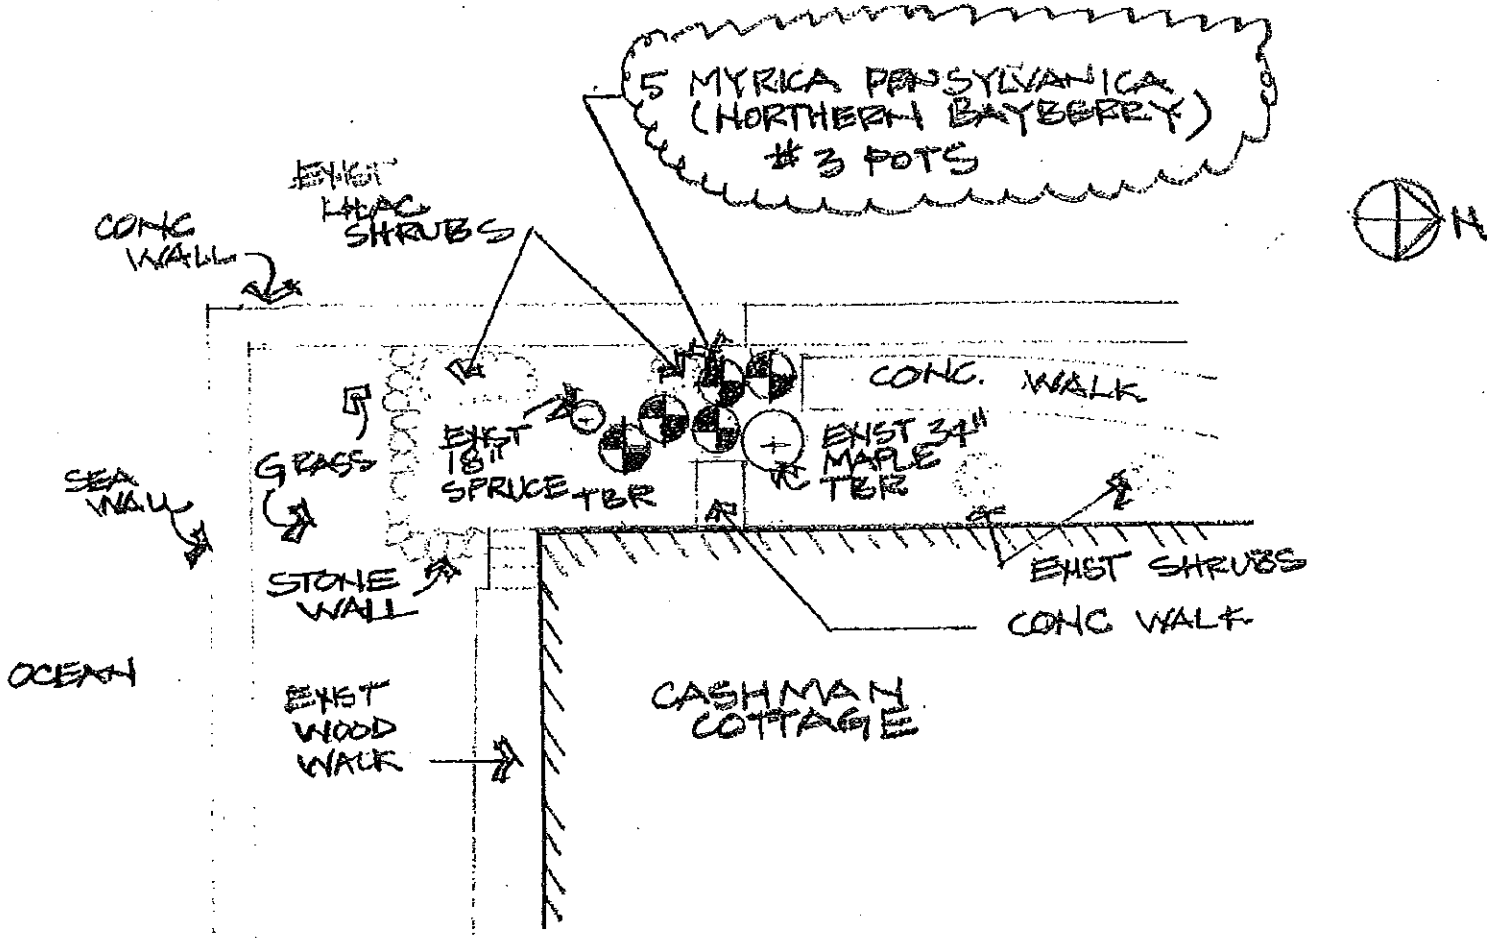 5 MYRICA PENSYLVANICA
(NORTHERN BAYBERRY)
#3 POTS
EXIST
LILAC
SHRUBS
CONC
WALL
N
CONC. WALK
EXIST
18"
SPRUCE TBR
EXIST 34"
MAPLE
TBR
GRASS
SEA
WALL
STONE
WALL
EXIST SHRUBS
CONC WALK
OCEAN
EXIST
WOOD
WALK
CASHMAN
COTTAGE